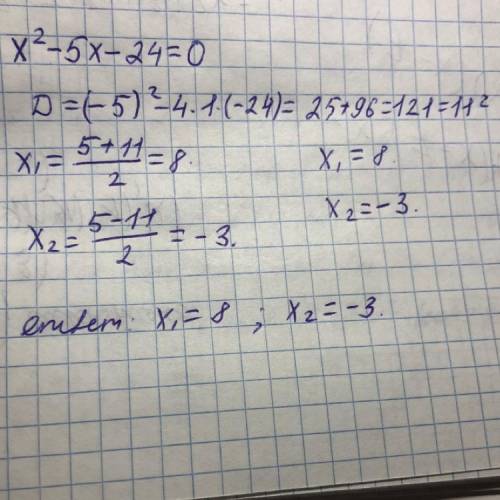 x²-5x-24=0
D=(-5)²-4·1·(-24)= 25+96=121=11²
x₁= (5+11)/2 =8. x₁=8.
x₂= (5-11)/2 = -3. x₂=-3.
ответ: x₁=8 ; x₂=-3.